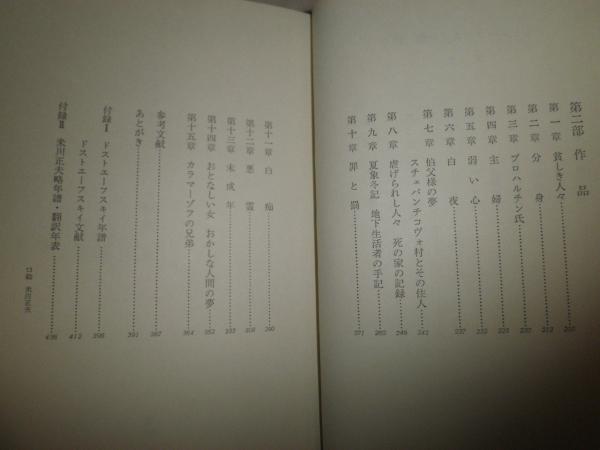 第二部 作品
第一章 貧しき人々
第二章 分身 212
第三章 プロハルチン氏 222
第四章 主婦
第五章 弱い心
第六章 白夜 237
第七章 伯父様の夢
スチェパンチコヴォ村とその住人 241
第八章 虐げられし人々 死の家の記録
第九章 夏象冬記 地下生活者の手記
第十章 罪と罰 271
第十一章 白痴
第十二章 悪霊
第十三章 未成年
第十四章 おとなしい女 おかしな人間の夢 352
第十五章 カラマーゾフの兄弟 364
参考文献 387
あとがき 391
付録Ⅰ ドストエーフスキイ年譜
ドストエーフスキイ文献 412
付録Ⅱ 米川正夫略年譜・翻訳年表
口絵 米川正夫